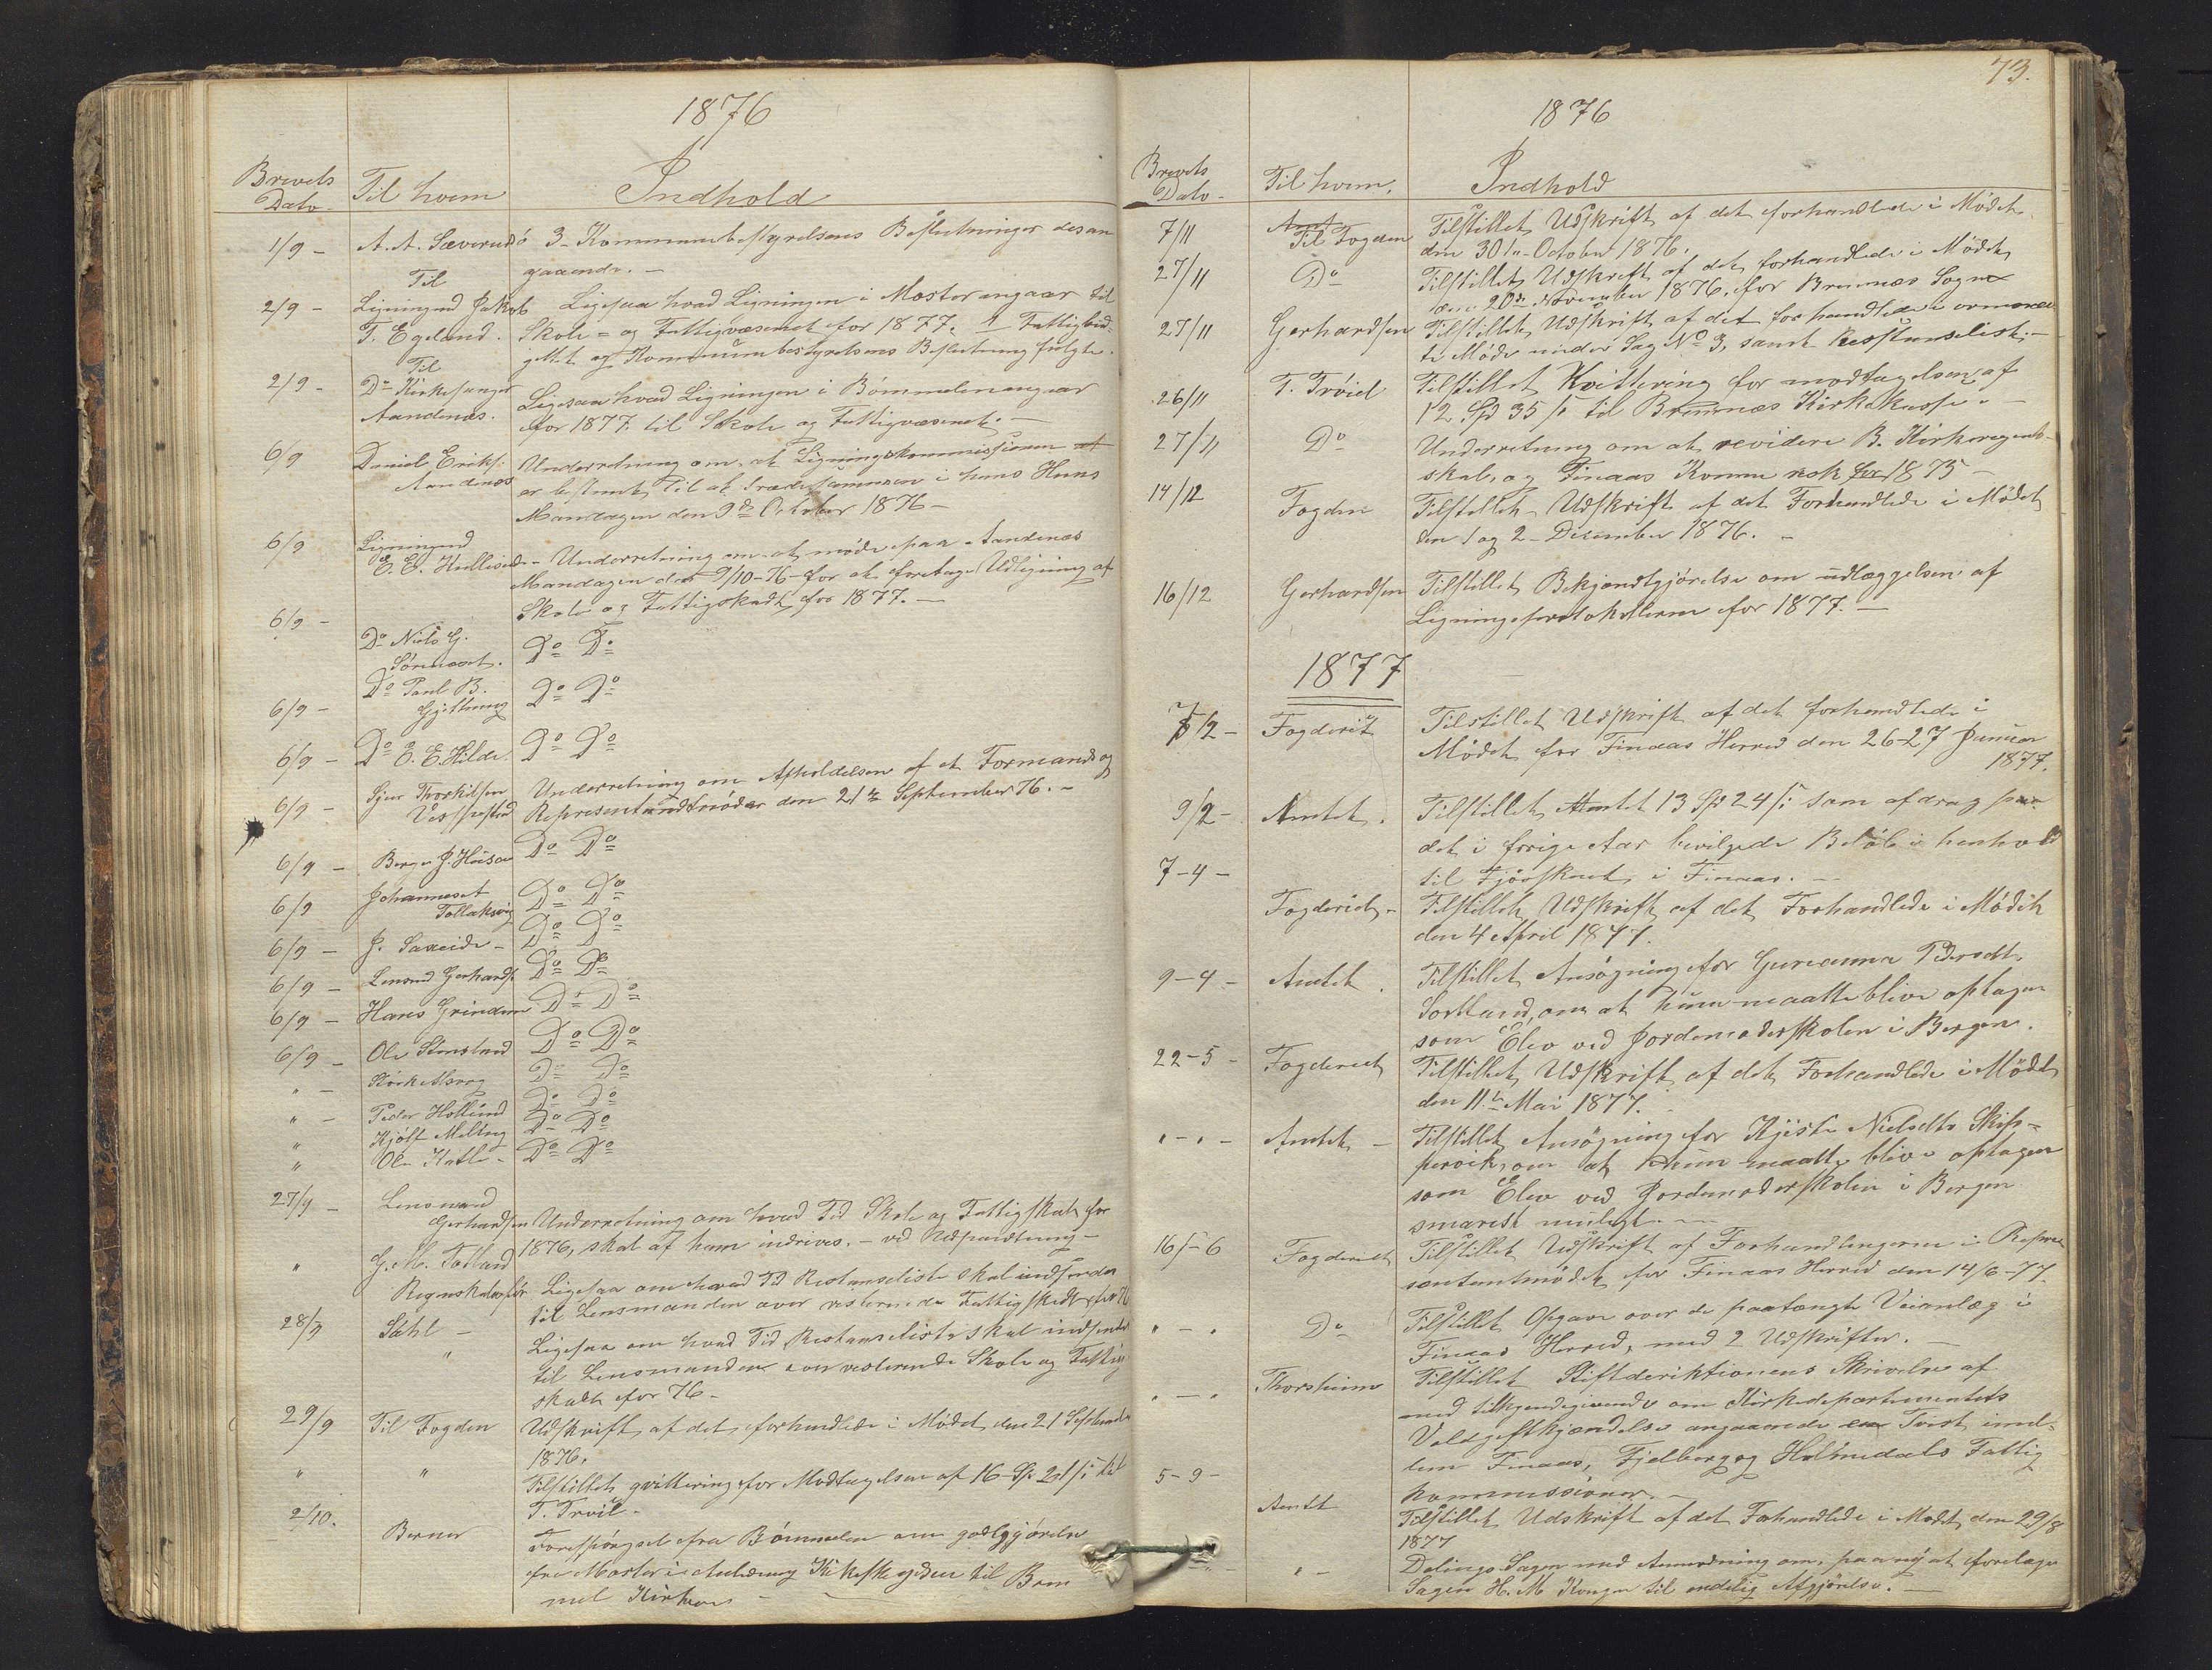 1876
Brevets
Dato
Til hvem
Indhold
1/9 - A. A. Sæverudö 3 Kommunebestyrelsens Beslutninger desan
gaaende. -
Til
2/9 - Ligningmd Jakob Ligesaa hvad Ligningen i Moster angaar til
T. Egeland. Skole- og Fattigvæsenet for 1877. 1 Fattigbud-
gett og Kommunbestyrelsens Beslutning fulgte.
Til
2/9 - Do Kirkesanger Ligesaa hvad Ligningen i Bömmelen angaar
Aandenæs. for 1877 til Skole og Fattigvæsenet. -
6/9 Daniel Eriks. Underretning om, at Ligningskommissionen
Aandenæs er bestemt til at træde sammen i hans Huus
Mandagen den 9de October 1876 -
6/9 Ligningmd
E. E. - Underretning om at möde paa Aandenæs
Mandagen den 9/10-76 for at foretage Udligning af
Skole og Fattigskadt for 1877. -
6/9 - Do Niels G.
Do Do
6/9 - Do Paul B.
Do Do
6/9 - Do E. E. Hilde. Do Do
6/9 - Sjur Thorkilsen Underretning om Afholdelsen af et Formands og
Vespestad Representandtmöder den 21de September 76. -
6/9 - Berge J. Do Do
6/9 Johannes
Tollaksvig Do Do
6/9 - J. Saxeide - Do Do
6/9 - Lensmd Gerhards. Do Do
6/9 - Hans Do Do
6/9 - Ole Stensland Do Do
" - Do Do
" - Peder Hollund Do Do
" Kjölf Melling Do Do
" Ole Katle - Do Do
27/9 - Lensmand
Gerhardsen Underretning om hvad Tid Skole og Fattigskat for
1876, skal af ham indrives. - ved Udpandtning -
" G. M. Totland
Regnskabsför Ligesaa om hvad Tid Restanseliste skal indsendes
til Lensmanden over resterende Fattigskadt for 76
28/9 - Ligesaa om hvad Tid, Restanseliste skal indsendes
" til Lensmanden over resterende Skole og Fattig
skadt for 76 -
29/9 Til Fogden Udskrift af det forhandlede i Mödet den 21 September
1876.
" " Tilstillet qvittering for Modtagelsen af 16 Sp 21 s til
T. Tröil.
2/10. Berner Forespörgsel fra Bömmelen om godtgjörelse
fra Moster i Anledning Kirkeskyden til Bem
mel Kirke
73.
1876
Brevets
Dato -
Til hvem.
Indhold
7/11 Til Fogden Tilstillet Udskrift af det forhandlede i Mödet
den 30te October 1876.
27/11 Do Tilstillet Udskrift af det forhandlede i Mödet
den 20de November 1876, for Bremnæs Sogn
27/11 Gerhardsen Tilstillet Udskrift af det forhandlede i ovmeld
te Möde under Sag No 3, samt Restanseliste. -
26/11 T. Tröiel Tilstillet Kvittering for modtagelsen af
12 Sp 35 s til Bremnæs Kirkekasse. -
27/11 Do Underretning om at revidere B. Kirkeregnt-
skab, og Finaas Komm rek for 1875 -
14/12 Fogden Tilstillet Udskrift af det Forhandlede i Mödet
den 1 og 2 Desember 1876. -
16/12 Gerhardsen Tilstillet Bekjendtgjörelse om udlæggelsen af
Ligningsprotokollerne for 1877. -
1877
5/2 - Fogderiet Tilstillet Udskrift af det forhandlede i
Mödet for Finaas Herred den 26-27 Januar
1877.
9/2 - Amtet. Tilstillet Amtet 13 Sp 24 s som afdrag paa
det i forrige Aar bevilgede Belöb i henhold
7-4 - til i Finaas. -
Fogderiet - Tilstillet Udskrift af det Forhandlede i Mödet
den 4 April 1877.
9-4 - Amtet. Tilstillet Ansögning for Gurianna Pedersdt.
Sortland, om at hun maatte blive optagen
som Elev ved Jordemoderskolen i Bergen.
22-5 - Fogderiet Tilstillet Udskrift af det Forhandlede i Mödet
den 11te Mai 1877.
" - " - Amtet - Tilstillet Ansögning for Kjersti Nielsdtr Skip-
pervik, om at hun maatte blive optagen
som Elev ved Jordemoderskolen i Bergen
snarest muligt. -
16/-6 Fogderiet Tilstillet Udskrift af Forhandlingerne i Repræ
sentantmödet for Finaas Herred den 14/6-77.
" - " Do Tilstillet Opgave over de paatængte Veianlæg i
Finaas Herred, med 2 Udskrifter. -
" - " Thorsheim Tilstillet Stiftderiktionens Skrivelse af
med tilkjendegivende om Kirkedepartementets
Voldgiftkjendelse angaaende en Tvist imel-
lem Finaas, Fjelberg og Holmedals Fattig
5-9 - kommissioner. -
Amtet Tilstillet Udskrift af det Forhandlede i Mödet den 29/8
1877
" - Delings Sagen med Anmodning om, paa ny at forelægge
Sagen H. M. Kongen til endelig Afgjörelse. -